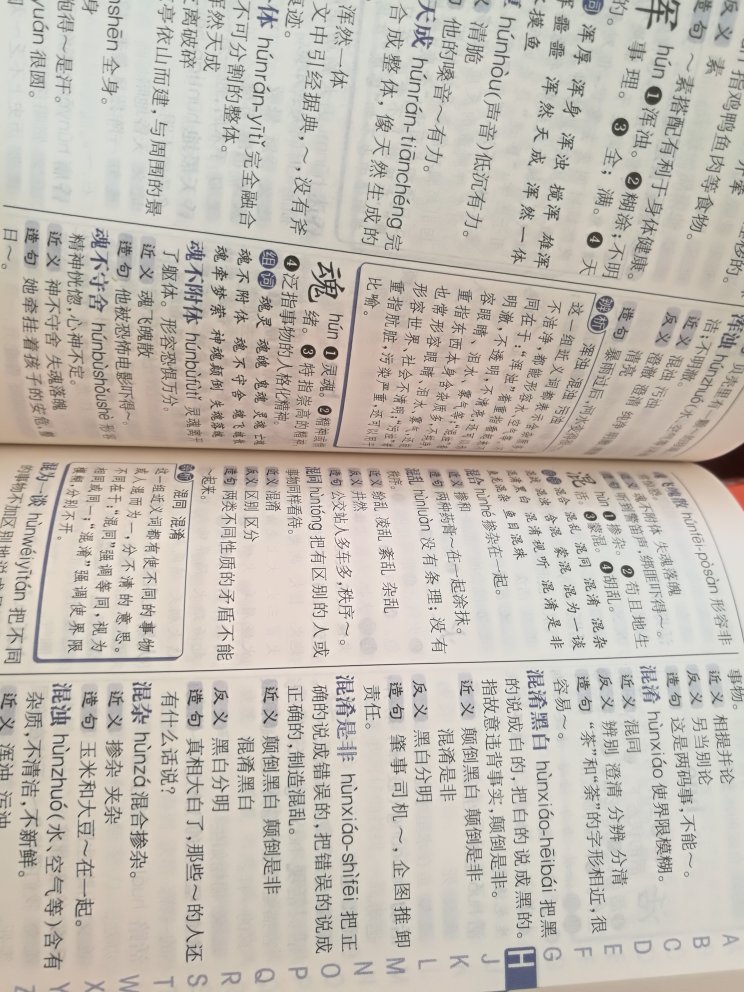 指鸡鸭鱼肉等食物。
反义 素
造句 ～素搭配有利于身体健康。
浑 hún ❶浑浊。❷糊涂;不明
事理。❸全;满。❹天
浑厚 浑身 浑浊 搅浑 雄浑
浑噩噩 浑然天成 浑然一体
水摸鱼
húnhòu(声音)低沉有力。
清脆
他的嗓音～有力。
天成 húnrán-tiānchéng 完
合成整体,像天然生成的
浑然一体
文中引经据典,～,没有斧
痕迹。
一体 húnrán-yītǐ 完全融合
不可分割的整体。
浑然天成
支离破碎
亭依山而建,与周围的景
húnshēn 全身。
身
跑得～是汗。
yuán 很圆。
浑浊 húnzhuó
洁;不明澈。
近义 混浊 污浊
反义 澄澈 澄清 纯净
清亮
造句 暴雨过后,河水变得
辨析 浑浊 混浊 污浊
这一组近义词都表示含杂质
不洁净,都能形容水、空气等
同在于:“浑浊”着重指
明澈,不透明,不清亮,还可
容眼睛、泪水、雾气等;“混浊”着
重指东西本身含杂质多,不纯净
也常形容眼睛、泪水、雾气
形容世界、社会不清明;“污浊”着
重指肮脏,污染严重,还可以用于
比喻。
魂 hún ❶灵魂。❷精神或情
绪。❸特指崇高的精神
❹泛指事物的人格化精神。
组词 魂灵 魂魄 鬼魂 灵魂
魂不附体 魂不守舍 魂飞魄散
魂牵梦萦 神魂颠倒 失魂落魄
魂不附体 húnbùfùtǐ 灵魂离开
了躯体。形容恐惧万分。
近义 魂飞魄散
造句 他被恐怖电影吓得～。
魂不守舍 húnbùshǒushè 形容
精神恍惚,心神不定。
近义 神不守舍 失魂落魄
造句 她牵挂着孩子的安危,整
日～。
魂飞魄散 húnfēi-pòsàn 形容非
常惊恐。
近义 魂不附体 失魂落魄
造句 听到警笛声,绑匪吓得～。
混 hùn ❶掺杂。❷苟且地生
活。❸蒙混。❹胡乱。
组词 混乱 混同 混淆 混杂
混浊 含混 蒙混 混为一谈
混淆黑白 混淆视听 混淆是非
鱼目混珠
混合 hùnhé 掺杂在一起。
近义 掺和
造句 两种药膏～在一起涂抹。
混乱 hùnluàn 没有条理;没有
秩序。
近义 纷乱 凌乱 紊乱 杂乱
反义 井然
造句 公交站人多车多,秩序～。
混同 hùntóng 把有区别的人或
事物同样看待。
近义 混淆
反义 区别 区分
造句 两类不同性质的矛盾不能
～起来。
辨析 混同 混淆
这一组近义词都有使不同的事物
或人混而为一,分不清的意思。
不同在于:“混同”强调等同,视为
相同或同一;“混淆”强调使界限
模糊,分别不开。
混为一谈 hùnwéiyītán 把不同
的事物不加区别地说成是
事物。
近义 相提并论
反义 另当别论
造句 这是两码事,不能～。
混淆 hùnxiáo 使界限模糊。
近义 混同
反义 辨别 澄清 分辨 分清
造句 “荼”和“茶”的字形相近,很
容易～。
混淆黑白 hùnxiáo-hēibái 把黑
的说成白的,把白的说成黑的。
指故意违背事实,颠倒是非。
近义 颠倒黑白 颠倒是非
混淆是非
反义 黑白分明
造句 肇事司机～,企图推卸
责任。
混淆是非 hùnxiáo-shìfēi 把正
确的说成错误的,把错误的说成
正确的,制造混乱。
近义 颠倒黑白 颠倒是非
混淆黑白
反义 黑白分明
造句 真相大白了,那些～的人还
有什么话说?
混杂 hùnzá 混合掺杂。
近义 掺杂 夹杂
造句 玉米和大豆～在一起。
混浊 hùnzhuó(水、空气等)含有
杂质,不清洁,不新鲜。
近义 浑浊 污浊
A
B
C
D
E
F
G
H
J
K
L
M
N
O
P
Q
R
S
T
W
X
Y
Z